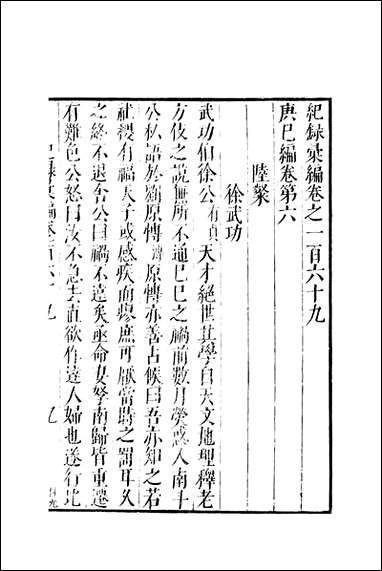 紀錄彙編卷之一百六十九
庚巳編卷第六
陸粲
徐武功
武功伯徐公有貞天才絕世其學自天文地理釋老
方伎之說無所不通巳巳之禍前數月熒惑入南斗
公私語於劉原博溥原博亦善占候曰吾亦知之若
社稷有福天子或感疾而瘳庶可厭當時之罰耳久
之終不退舍公曰禍不遠矣亟命妻孥南歸皆重遷
有難色公怒曰汝不急去直欲作達人婦也遂行比